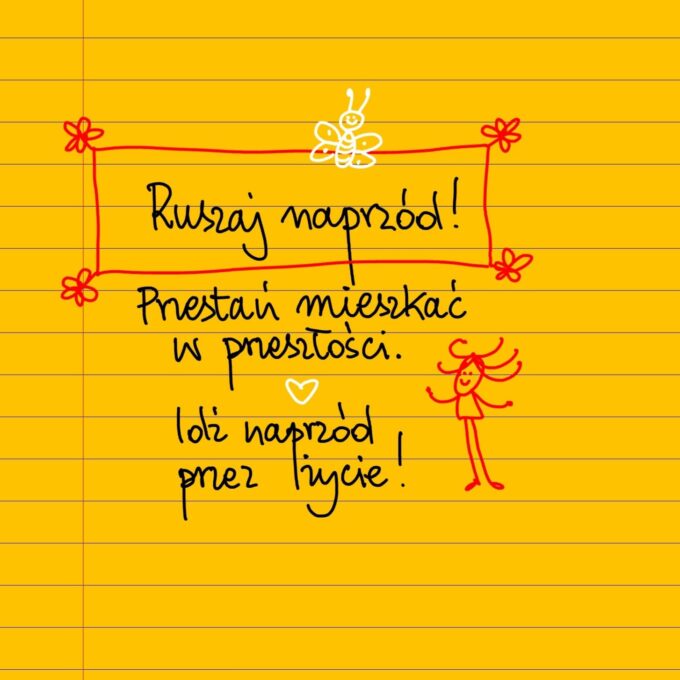 Ruszaj naprzód!
Przestań mieszkać
w przeszłości.
Idź naprzód
przez życie!